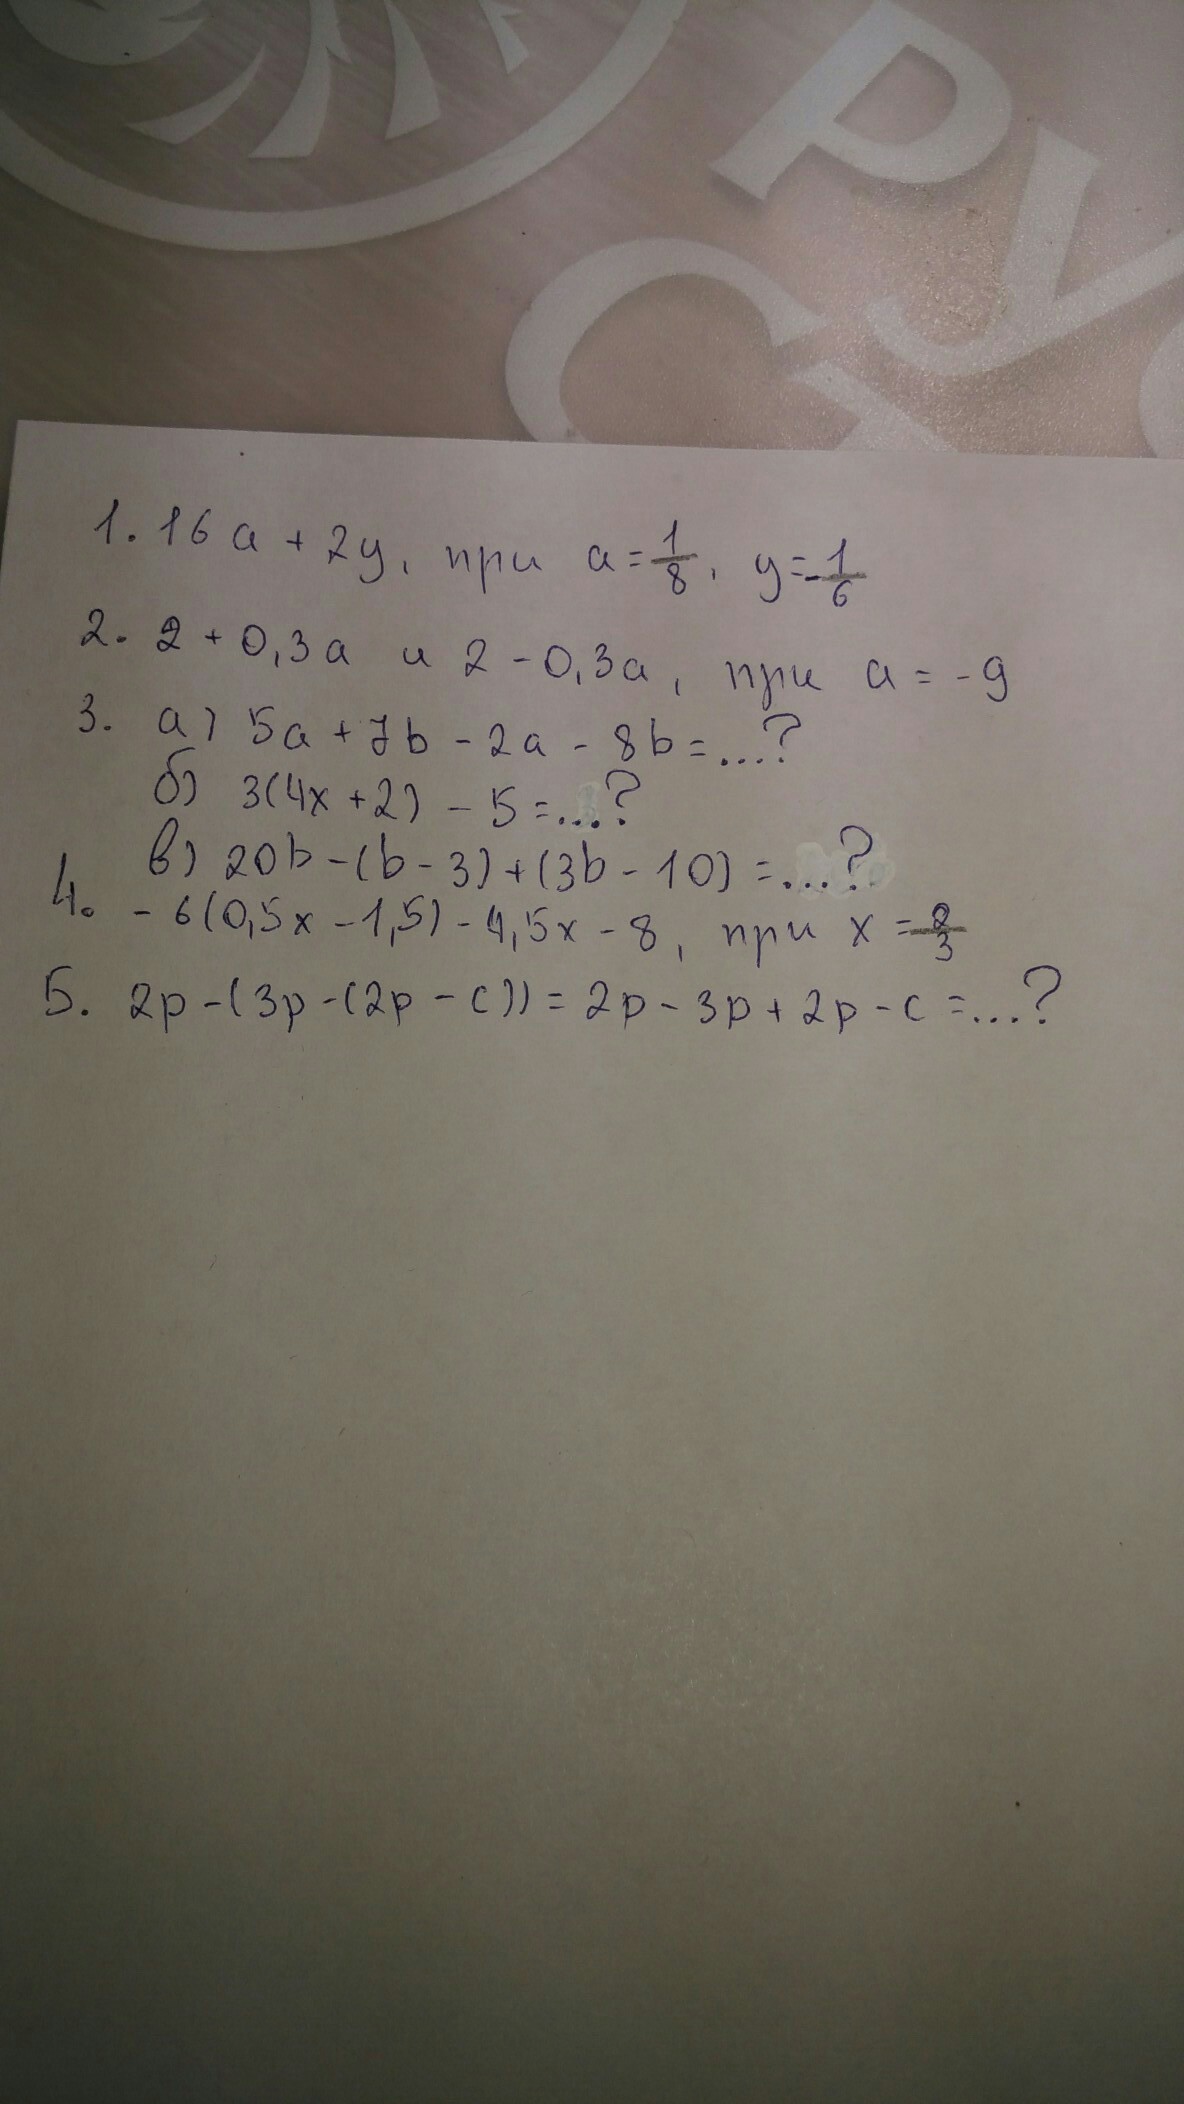 РУС
С
1. 16a + 2y, при a = 1/8, y = -1/6
2. 2 + 0,3a и 2 - 0,3a, при a = -9
3. а) 5a + 7b - 2a - 8b = ...?
б) 3(4x + 2) - 5 = ...?
в) 20b - (b - 3) + (3b - 10) = ...?
4. - 6(0,5x - 1,5) - 4,5x - 8, при x = 2/3
5. 2p - (3p - (2p - c)) = 2p - 3p + 2p - c = ...?